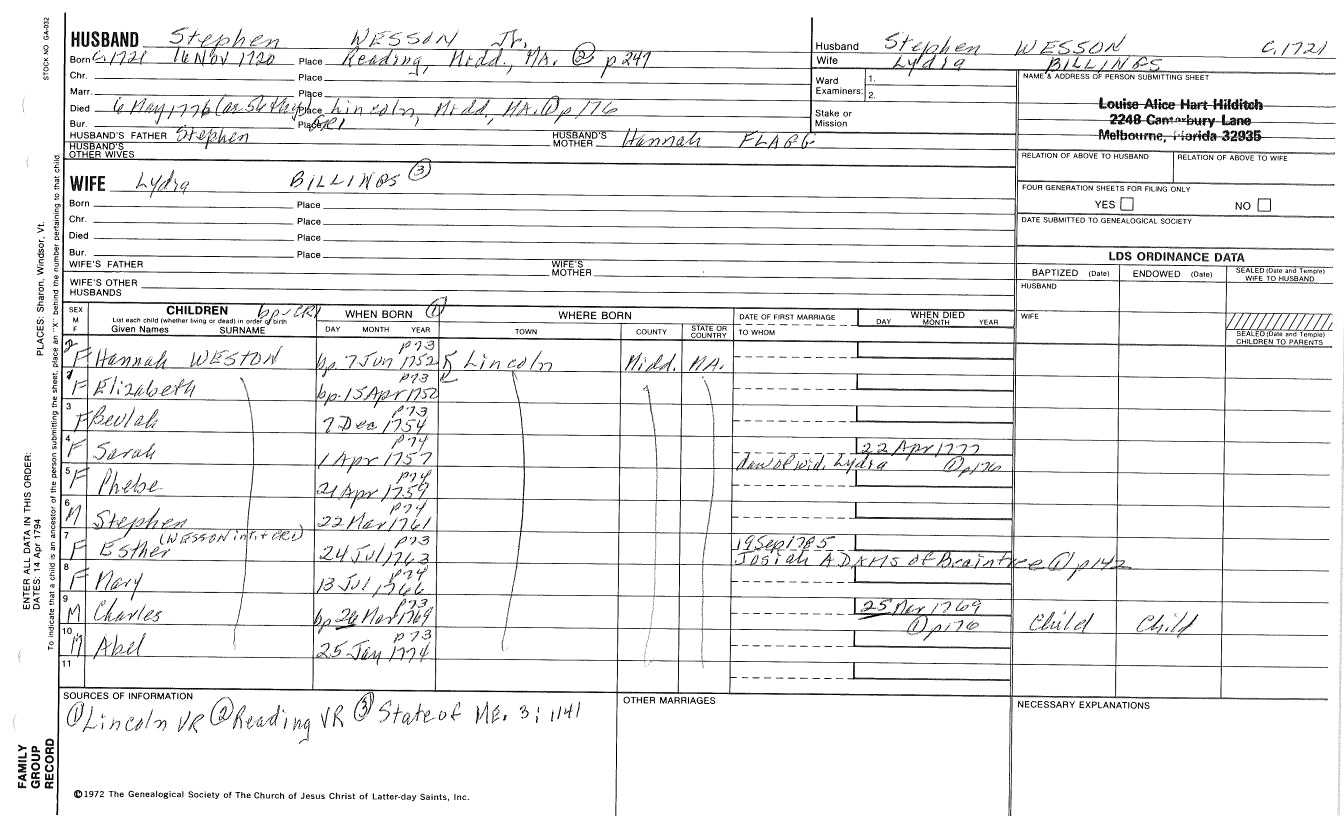 STOCK NO. GA-032
HUSBAND Stephen WESSON Jr.
Born C.1721 16 Nov 1720 Place Reading, Midd., MA. ② p 247
Chr. Place
Marr. Place
Died 6 May 1776 Place Lincoln, Midd, MA. ① p 176
Bur. Place GR1
HUSBAND'S FATHER Stephen HUSBAND'S MOTHER Hannah FLAGG
HUSBAND'S OTHER WIVES
WIFE Lydia BILLINGS ③
Born Place
Chr. Place
Died Place
Bur. Place
WIFE'S FATHER WIFE'S MOTHER
WIFE'S OTHER HUSBANDS
Husband Stephen WESSON C.1721
Wife Lydia BILLINGS
Ward Examiners: 1.
2.
Stake or Mission
NAME & ADDRESS OF PERSON SUBMITTING SHEET
Louise Alice Hart Hilditch
2248 Canterbury Lane
Melbourne, Florida 32935
RELATION OF ABOVE TO HUSBAND RELATION OF ABOVE TO WIFE
FOUR GENERATION SHEETS FOR FILING ONLY
YES NO
DATE SUBMITTED TO GENEALOGICAL SOCIETY
LDS ORDINANCE DATA
BAPTIZED (Date) ENDOWED (Date) SEALED (Date and Temple) WIFE TO HUSBAND
HUSBAND
WIFE
SEALED (Date and Temple) CHILDREN TO PARENTS
SEX M F
CHILDREN bp-CR1
List each child (whether living or dead) in order of birth
Given Names SURNAME
WHEN BORN ①
DAY MONTH YEAR
WHERE BORN
TOWN COUNTY STATE OR COUNTRY
DATE OF FIRST MARRIAGE
TO WHOM
WHEN DIED
DAY MONTH YEAR
2 F Hannah WESTON bp. 7 Jun 1752 p73 Lincoln Midd. MA.
1 F Elizabeth bp. 15 Apr 1752 p73
3 F Beulah 7 Dec 1754 p73
4 F Sarah 1 Apr 1757 p74 22 Apr 1777
dau of wid. Lydia ① p176
5 F Phebe 21 Apr 1759 p74
6 M Stephen 22 Mar 1761 p74
7 F Esther (WESSON int. + CR1) 24 Jul 1763 p73 19 Sep 1785
Josiah ADAMS of Braintree ① p142
8 F Mary 13 Jul 1766 p74
9 M Charles bp 26 Mar 1769 p73 25 Mar 1769 ① p176 Child Child
10 M Abel 25 Jan 1774 p73
11
SOURCES OF INFORMATION
① Lincoln VR ② Reading VR ③ State of ME. 3; 1141
OTHER MARRIAGES
NECESSARY EXPLANATIONS
©1972 The Genealogical Society of The Church of Jesus Christ of Latter-day Saints, Inc.
FAMILY GROUP RECORD
ENTER ALL DATA IN THIS ORDER:
DATES: 14 Apr 1794
PLACES: Sharon, Windsor, Vt.
To indicate that a child is an ancestor of the person submitting the sheet, place an "X" behind the number pertaining to that child